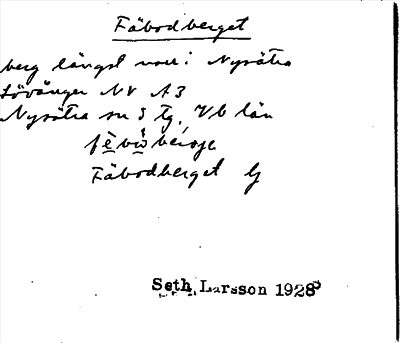 Fäbodberget
berg längst norr i Nysätra
Lövånger NV A3
Nysätra sn S tg. Vb län
Fäbodberget G
Seth Larsson 1928